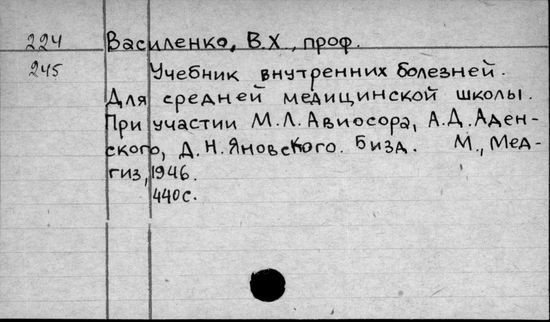 224 Василенко, В.Х., проф.
245 Учебник внутренних болезней.
Для средней медицинской школы.
При участии М.Л. Авиосора, А.Д. Аден-
ского, Д.Н. Яновского. 6изд. М., Мед-
гиз, 1946.
440с.